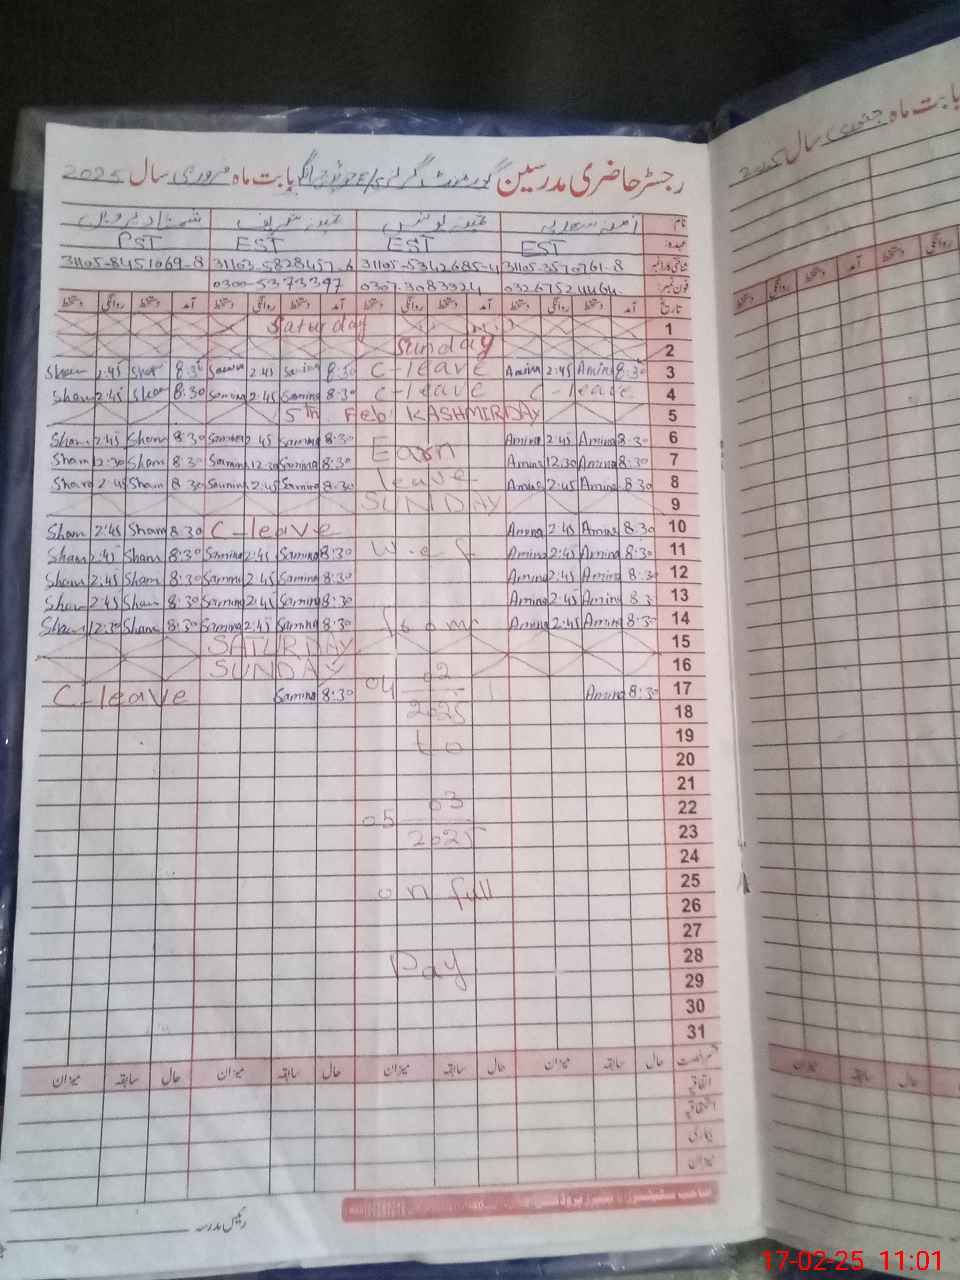 رجسٹر حاضری مدرسین گورنمنٹ گرلز بابت ماہ فروری سال 2025
نام
عہدہ EST EST EST PST
31105-8451069-8 31103-5828457-6 31105-5342685-4 31105-3570761-8
فون نمبر 0300-5373397 0307-3083924
تاریخ آمد دستخط روانگی دستخط آمد دستخط روانگی دستخط آمد دستخط روانگی دستخط آمد دستخط روانگی دستخط
Saturday 1
Sunday 2
Sham 2:45 Sham 8:30 Samina 2:45 Samina 8:30 C-leave Amina 2:45 Amina 8:30 3
Sham 2:45 Sham 8:30 Samina 2:45 Samina 8:30 C-leave C-leave 4
5th Feb KASHMIR DAY 5
Sham 2:45 Sham 8:30 Samina 2:45 Samina 8:30 Earn Amina 2:45 Amina 8:30 6
Sham 12:30 Sham 8:30 Samina 12:30 Samina 8:30 Amina 12:30 Amina 8:30 7
Sham 2:45 Sham 8:30 Samina 2:45 Samina 8:30 leave Amina 2:45 Amina 8:30 8
SUNDAY 9
Sham 2:45 Sham 8:30 C-leave Amina 2:45 Amina 8:30 10
Sham 2:45 Sham 8:30 Samina 2:45 Samina 8:30 w.e.f Amina 2:45 Amina 8:30 11
Sham 2:45 Sham 8:30 Samina 2:45 Samina 8:30 Amina 2:45 Amina 8:30 12
Sham 2:45 Sham 8:30 Samina 2:45 Samina 8:30 Amina 2:45 Amina 8:3 13
Sham 12:30 Sham 8:30 Samina 2:45 Samina 8:30 from Amina 2:45 Amina 8:30 14
SATURDAY 15
SUNDAY 16
C-leave Samina 8:30 04 02 Amina 8:30 17
2025 18
to 19
20
21
05 03 22
2025 23
24
on full 25
26
27
Pay 28
29
30
31
حال سابقہ میزان حال سابقہ میزان حال سابقہ میزان حال سابقہ میزان
اتفاقیہ
استحقاقیہ
بیماری
میزان
رئیس مدرسہ
بابت ماہ جنوری سال 2025
آمد دستخط روانگی دستخط
حال سابقہ میزان
17-02-25 11:01